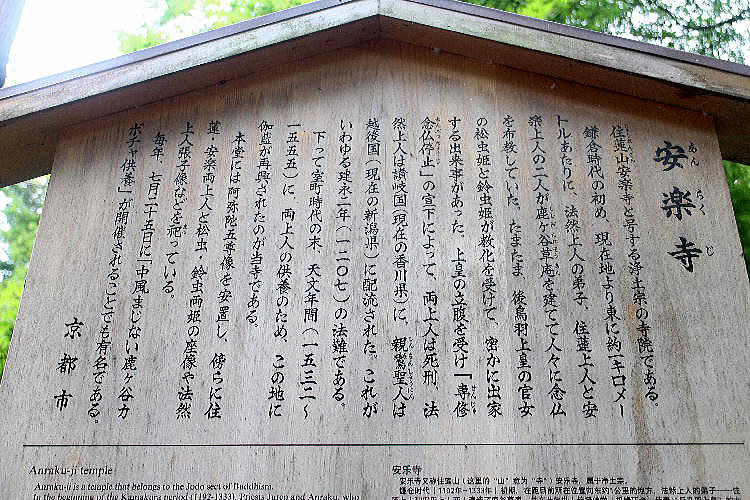 安楽寺
あん らく じ
住蓮山安楽寺と号する浄土宗の寺院である。
鎌倉時代の初め、現在地より東に約一キロメー
トルあたりに、法然上人の弟子、住蓮上人と安
楽上人の二人が鹿ヶ谷草庵を建てて人々に念仏
を布教していた。たまたま、後鳥羽上皇の官女
の松虫姫と鈴虫姫が教化を受けて、密かに出家
する出来事があった。上皇の立腹を受け「専修
念仏停止」の宣下によって、両上人は死刑、法
然上人は讃岐国(現在の香川県)に、親鸞聖人は
越後国(現在の新潟県)に配流された。これが
いわゆる建永二年(一二〇七)の法難である。
下って室町時代の末、天文年間(一五三二〜
一五五五)に、両上人の供養のため、この地に
伽藍が再興されたのが当寺である。
本堂には阿弥陀五尊像を安置し、傍らに住
蓮・安楽両上人と松虫・鈴虫両姫の座像や法然
上人張子像などを祀っている。
毎年、七月二十五日に「中風まじない鹿ヶ谷カ
ボチャ供養」が開催されることでも有名である。
京都市
Anraku-ji temple
Anraku-ji is a temple that belongs to the Jodo sect of Buddhism.
In the beginning of the Kamakura period (1192-1333), Priests Juren and Anraku, who
安乐寺
安乐寺又称住莲山(这里的"山"意为"寺")安乐寺，属于净土宗。